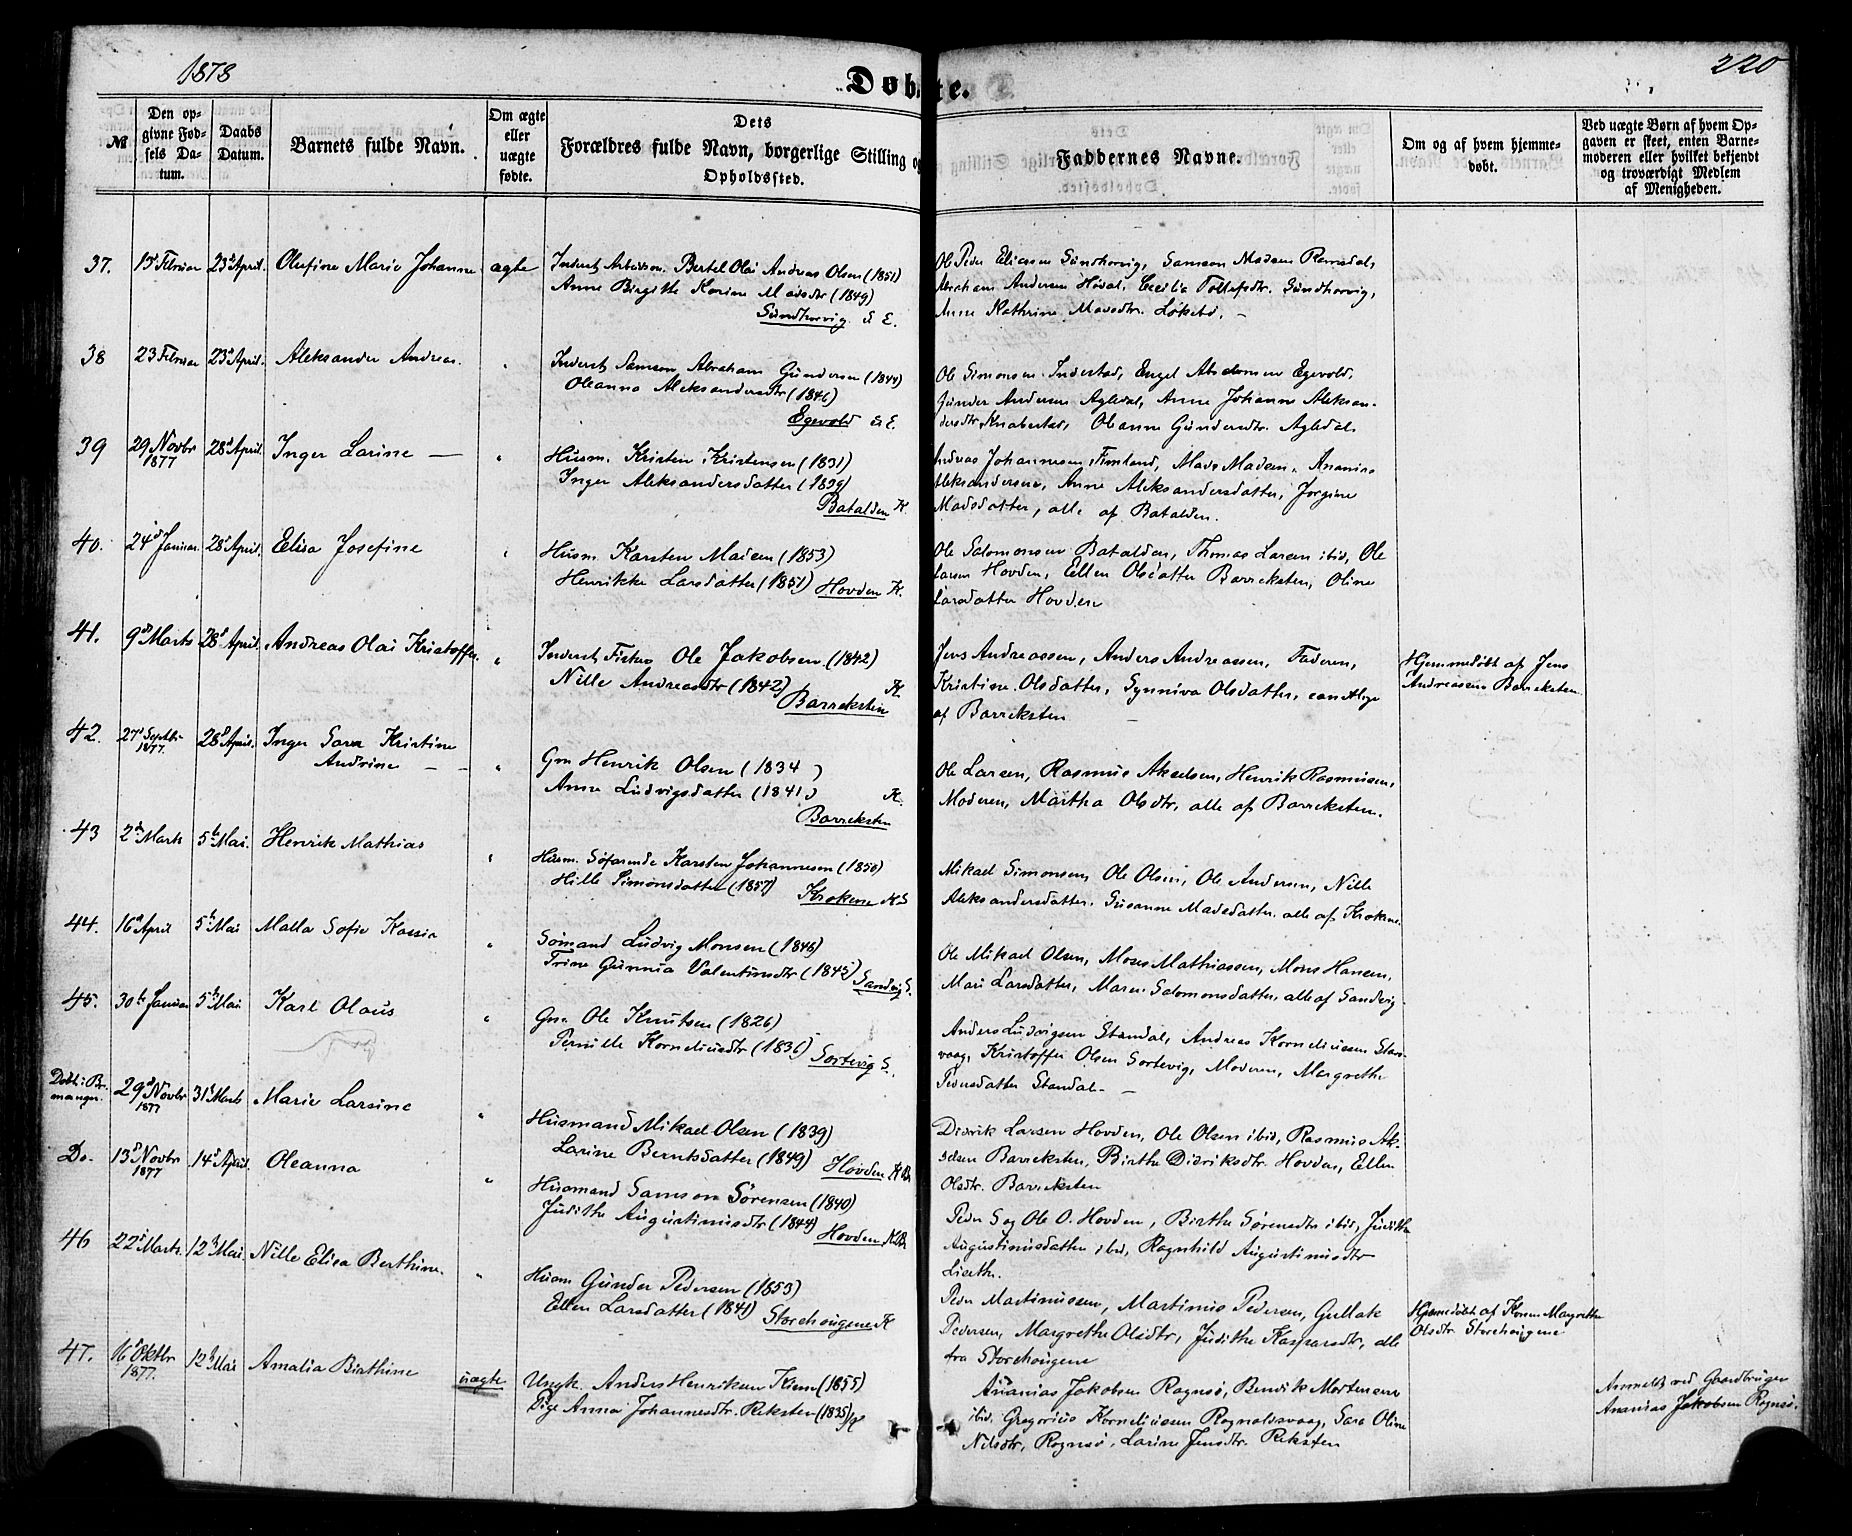 1878
Døbte.
220
№
Den opgivne Fødsels Datum.
Daabs Datum.
Barnets fulde Navn.
Om ægte eller uægte fødte.
Dets Forældres fulde Navn, borgerlige Stilling og Opholdssted.
Faddernes Navne.
Om og af hvem hjemmedøbt.
Ved uægte Børn af hvem Opgaven er skeet, enten Barnemoderen eller hvilket bekjendt og troværdigt Medlem af Menigheden.
37. 15 Februar 23d April. Olufine Marie Johanne ægte Inderst Bertel Olai Andreas Olsen (1851)
Anne Birgithe Karine (1849)
Sundhorvig
Ole Peder Eliassen Sundhorvig, Samson Madsen Ramsdal,
Abraham Andersen Høidal, Cecilia Tollefsdtr. Sundhorvig,
Anne Kathrine Madsdtr. Løkebø. –
38 23 Februar 23d April. Aleksander Andreas. " Inderst Samson Abraham Gundersen (1844)
Oleanna Aleksandersdtr (1846)
Egevold
Ole Simonsen Indestad, Engel Absalonsen Egevold,
Gunder Andersen Agledal, Anne Johanne Aleksan-
dersdtr. Knabestad, Oleanne Gundersdtr. Agledal
39 29 Novbr 1877 28d April. Inger Larine — " Husm. Kristen Kristensen (1831)
Inger Aleksandersdatter (1839)
Batalden K.
Andreas Johannesen Fimland, Mads Madsen, Ananias
Aleksandersen, Anne Aleksandersdatter, Jorgine
Madsdatter, alle af Batalden.
40. 24d Januar. 28d April. Elisa Josefine " Husm. Karsten Madsen (1853)
Henrikke Larsdatter (1851) Hovden K.
Ole Salomonsen Batalden, Thomas Larsen ibid, Ole
Larsen Hovden, Ellen Olsdatter Barreksten, Oline
Larsdatter Hovden
41. 9d Marts 28d April. Andreas Olai Kristoffer. " Inderst Fisker Ole Jakobsen (1842)
Nille Andreasdtr (1842) K.
Barreksten
Jens Andreassen, Anders Andreassen, Faderen,
Kristine Olsdatter, Synniva Olsdatter, samtlige
af Barreksten —
Hjemmedøbt af Jens
Andreasen Barreksten
42. 27d Septbr 1877. 28d April. Inger Sara Kristine
Andrine — – " Gm Henrik Olsen (1834 )
Anne Ludvigsdatter (1841) K.
Barreksten
Ole Larsen, Rasmus Akselsen, Henrik Rasmussen,
Moderen, Martha Olsdtr, alle af Barreksten.
43 2d Marts 5te Mai. Henrik Mathias " Husm. Søfarende Karsten Johannesen (1850)
Hille Simonsdatter (1857) Krokene K.S
Mikael Simonsen, Ole Olsen, Ole Andersen, Nille
Aleksandersdatter, Susanne Madsdatter, alle af Krokene.
44. 16d April 5te Mai Malla Sofie Kassia " Sømand Ludvig Monsen (1846)
Trine Gunnia Valentinsdtr (1845) Sandvig S.
Ole Mikael Olsen, Moses Mathiassen, Mons Hansen,
Mari Larsdatter, Maren Salomonsdatter, alle af Sandvig
45. 30te Januar 5te Mai. Karl Olaus " Gm. Ole Knutsen (1826)
Pernille Korneliusdtr (1836) Sortevig S.
Anders Ludvigsen Standal, Andreas Korneliussen Stan-
vaag, Kristoffer Olsen Sortevig, Moderen, Margrethe
Pedersdatter Standal. —
Døbt i Bre-
manger. 29d Novbr 1877 31te Marts Marie Larsine " Husmand Mikael Olsen (1839)
Larine Berntsdatter (1849) Hovden K
Didrik Larsen Hovden, Ole Olsen ibid, Rasmus Ak-
selsen Barreksten, Birthe Didriksdtr. Hovden, Ellen
Olsdtr. Barreksten
Do. 13d Novbr 1877 14d April Oleanna " Husmand Samson Sørensen (1840)
Judithe Augustinusdtr (1844) Hovden
Peder S og Ole O. Hovden, Birthe Sørensdtr ibid, Judithe
Augustinusdatter ibid, Ragnhild Augustinusdtr
Liseth.
46 22d Marts. 12te Mai. Nille Elisa Berthine. " Husm Gunder Pedersen (1853)
Ellen Larsdatter (1841) Storehougene K
Peder Martinussen, Martinus Pedersen, Gullak
Pedersen, Margrethe Olsdtr, Judithe Kaspersdtr, alle
fra Storehougene
Hjemmedøbt af Karen Margrethe
Olsdtr Storehougene
47. 16d Oktbr 1877. 12te Mai Amalia Birthine uægte Ungk. Anders Henriksen (1855)
Pige Anna Johannesdtr. Reksten (1835) K
Ananias Jakobsen Rognsø, Bendik Mortensen
ibid, Gregorius Korneliussen Rognaldsvaag, Sara Oline
Nilsdtr, Rognsø, Larine Jensdtr. Reksten
Anmeldt ved Gaardbruger
Ananias Jakobsen Rognsø.